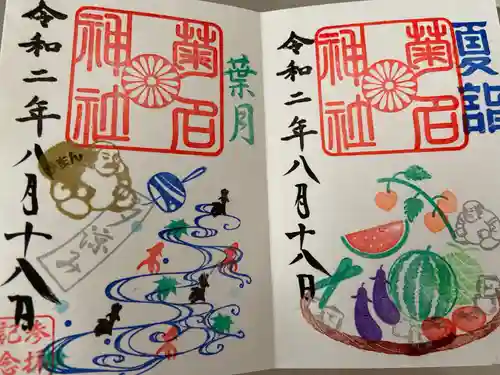 夏詣
菊名神社
令和二年八月十八日
葉月
菊名神社
令和二年八月十八日
がまん
参拝記念